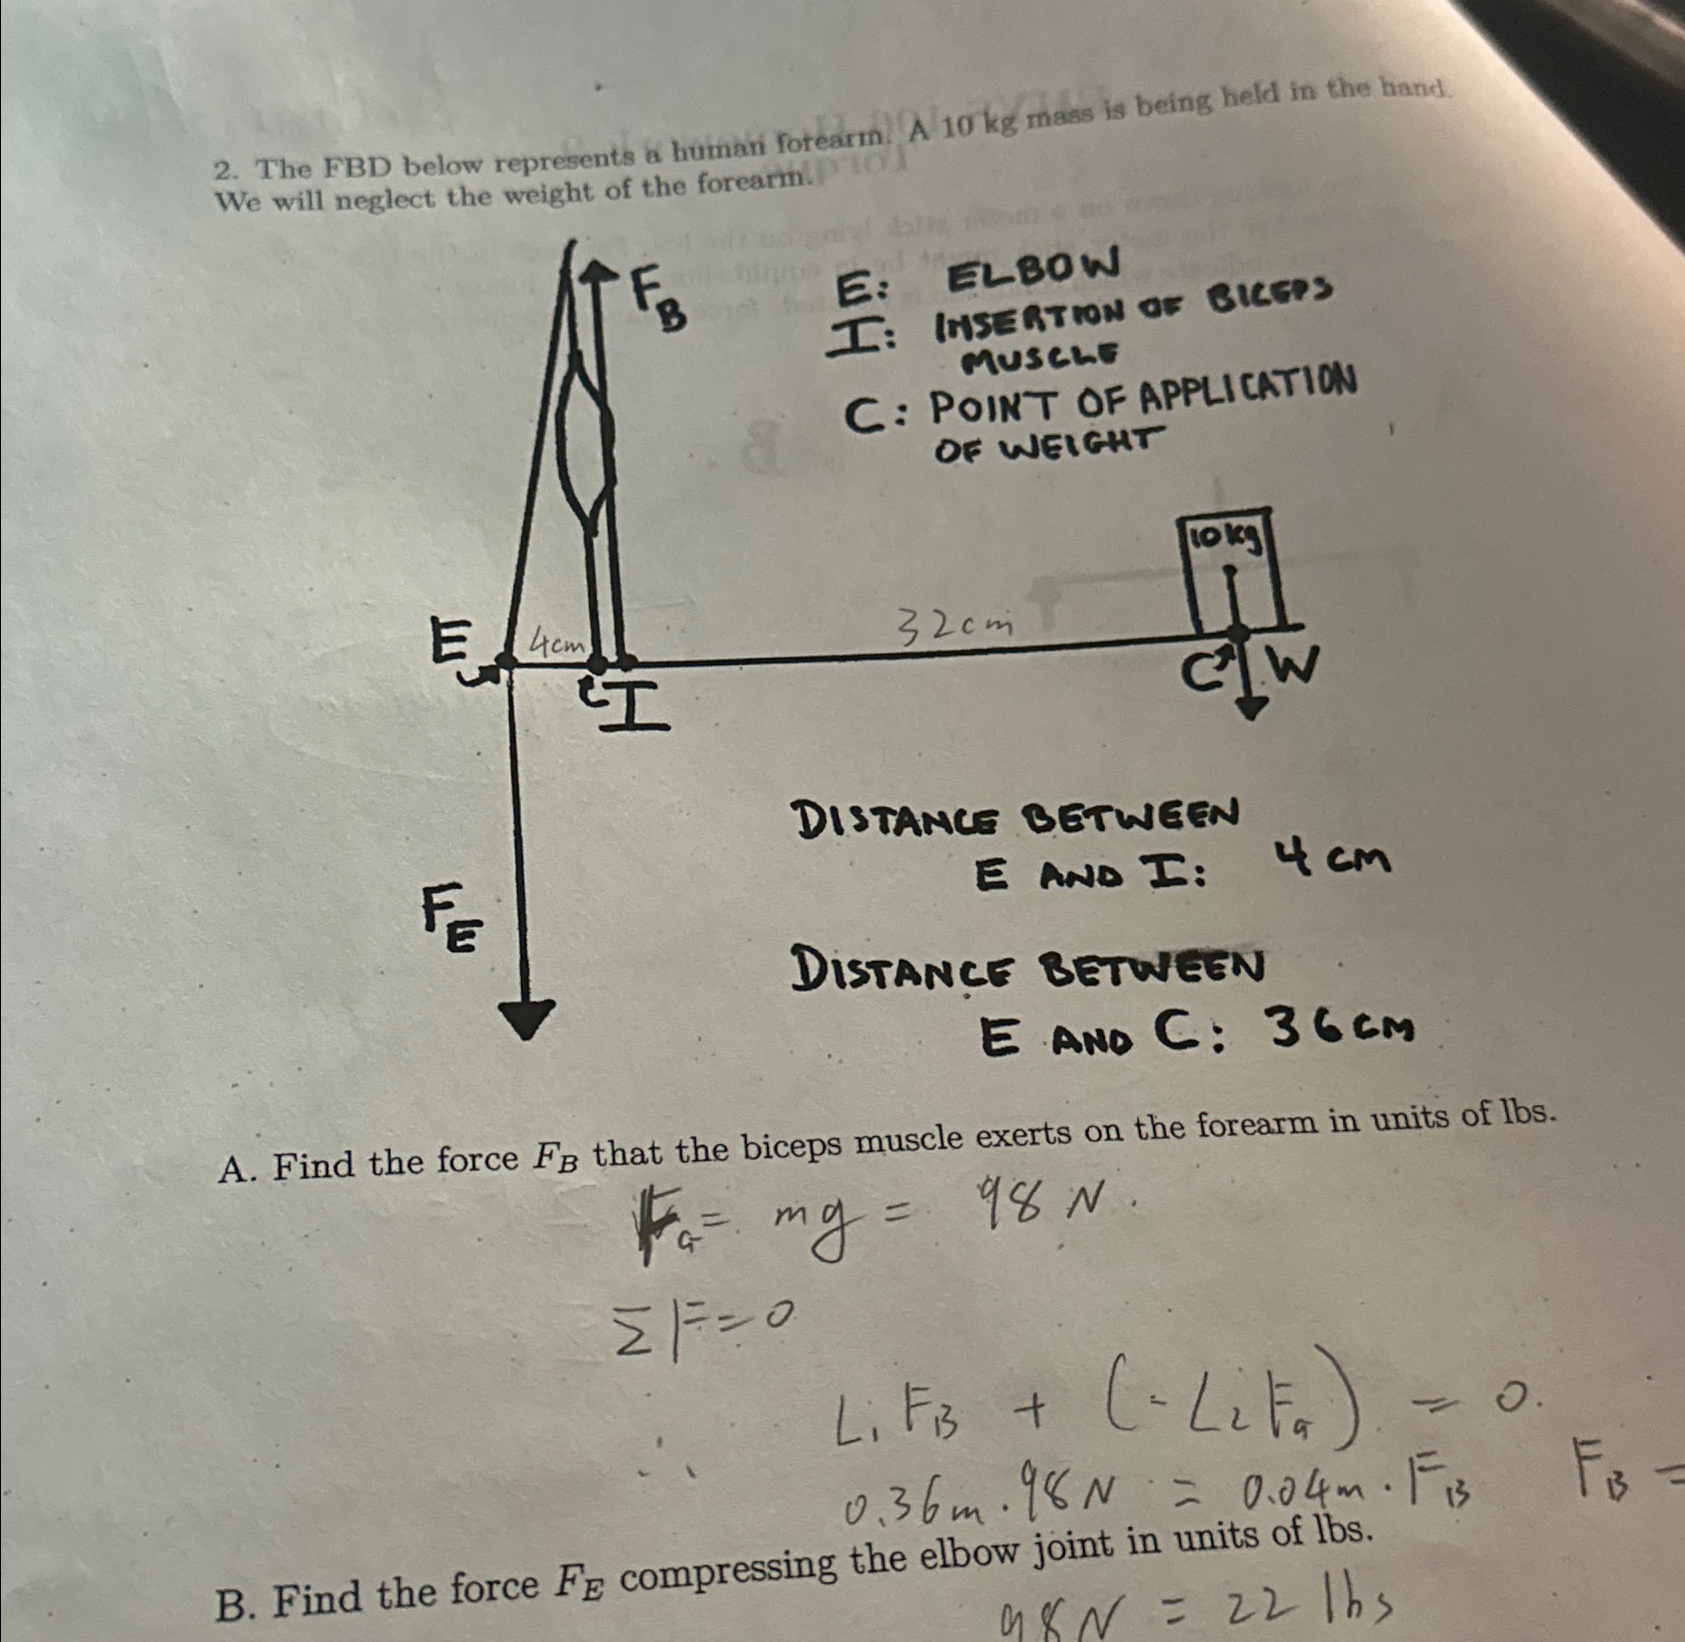 2. The FBD below represents a human forearm. A 10 kg mass is being held in the hand.
We will neglect the weight of the forearm.
F_B
E: ELBOW
I: INSERTION OF BICEPS
MUSCLE
C: POINT OF APPLICATION
OF WEIGHT
10kg
E 4cm 32cm
I C W
DISTANCE BETWEEN
E AND I: 4 CM
F_E
DISTANCE BETWEEN
E AND C: 36 CM
A. Find the force F_B that the biceps muscle exerts on the forearm in units of lbs.
F_G = mg = 98 N.
ΣF = 0
∴ L₁F_B + (-L₂F_G) = 0.
0.36m · 98N = 0.04m · F_B F_B =
B. Find the force F_E compressing the elbow joint in units of lbs.
98N = 22 lbs